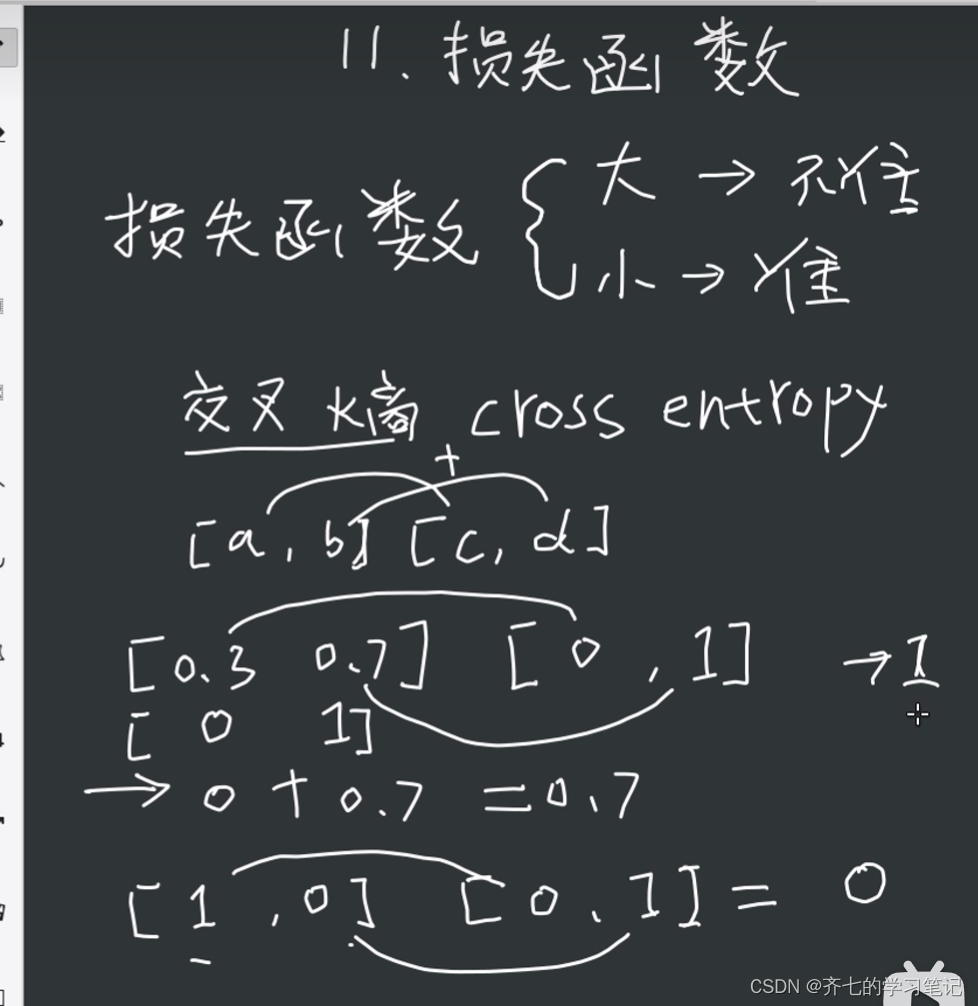 11. 损失函数
损失函数 { 大 → 不准
小 → 准
交叉熵 cross entropy
+
[a, b] [c, d]
[0.3 0.7] [0, 1] → 1
[0 1]
→ 0 + 0.7 = 0.7
[1, 0] [0, 1] = 0
CSDN @齐七的学习笔记